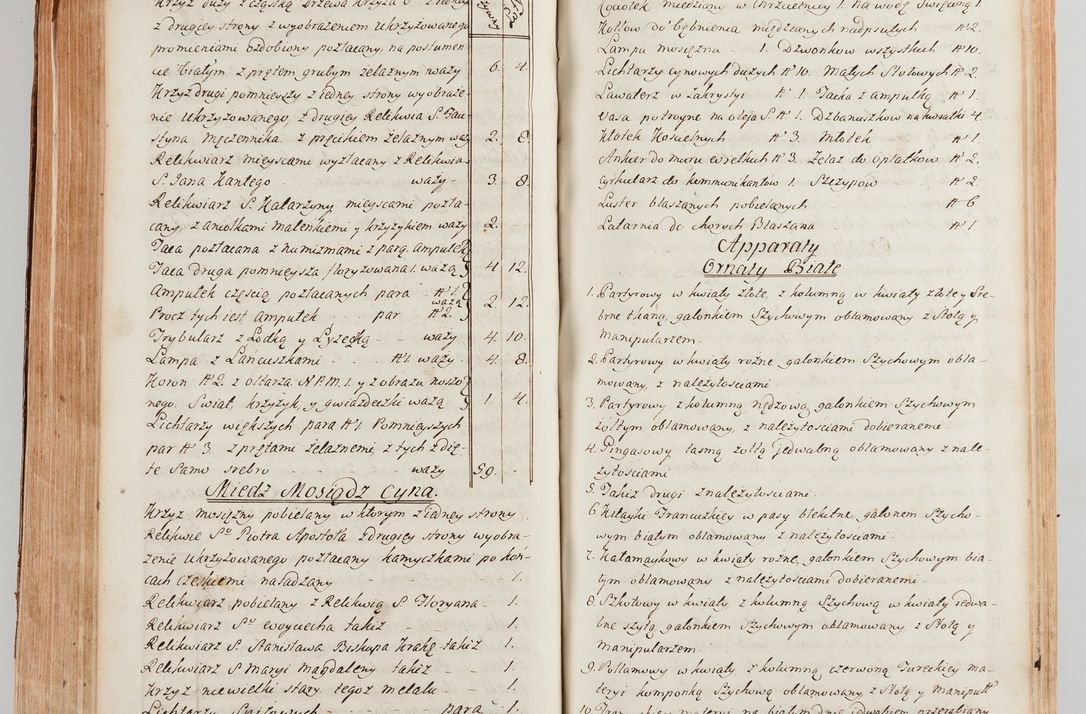 Krzyż duży z cząstką Drzewa Krzyża S. z iedney
z drugiey strony z wyobrażeniem Ukrzyżowanego
promieniami ozdobiony pozłacany, na postumen-
cie białym z prętem grubym żelaznym waży 6. 4.
Krzyż drugi pomnieyszy z iedney strony wyobraże-
nie Ukrzyżowanego, z drugiey Relikwia S. Fau-
styna Męczennika. z pręcikiem żelaznym waży 2. 8.
Relikwiarz mieyscami wyzłacany z Relikwią
S. Jana Kantego. waży 3. 8.
Relikwiarz S. Katarzyny mieyscami pozła-
cany, z aniołkami maleńkiemi y krzyżykiem waży 2.
Taca pozłacana z numizmami z parą ampułek
Taca druga pomnieysza florysowana 1. ważą 4 12.
Ampułek częścią pozłacanych para № 1.
ważą 2 12.
Procz tych iest ampułek par № 2.
Trybularz z Łodką y Łyżeczką waży 4. 10.
Lampa z Łancuszkami № 1. waży 4. 8.
Koron № 2. z ołtarza N.P.M. 1. y z obrazu noszo-
nego. Swiat, krzyżyk, y gwiazdeczki ważą 1. 4.
Lichtarzy większych para № 1. Pomnieyszych
par № 3. z prętami żelaznemi, z tych zdię-
te samo srebro waży 59. -
Miedz Mosiądz Cyna.
Krzyż mosiężny pobielany w ktorym z iedney strony
Relikwie Sgo Piotra Apostoła z drugiey strony wyobra-
żenie Ukrzyżowanego pozłacany kamyczkami po koń-
cach Czeskiemi nasadzany 1.
Relikwiarz pobielany z Relikwią S. Floryana 1.
Relikwiarz Sgo Woyciecha takiż 1.
Relikwiarz S. Stanisława Biskupa Krakº takiż 1.
Relikwiarz S Maryi Magdaleny takiż 1.
Krzyż niewielki stary tegoż metalu 1.
Lichtarzy Spiżowych para 1.
Kociołek miedziany w Chrzcielnicy 1. Na wodę Swięconą 1.
Kotłow do bębnienia miedzianych nadpsutych № 2.
Lampa mosiężna 1. Dzwonkow wszystkich № 10.
Lichtarzy cynowych dużych № 10. Małych Stołowych № 2.
Lawaterz w Zakrystyi № 1. Tacka z ampułką № 1.
Vasa potroyne na oleja S. № 1. Dzbanuszkow na kwiatki 4.
Kłotek Kościelnych № 3. Młotek № 1
Ankier do muru wielkich № 3. Żelaz do Opłatkow № 2.
Cyrkularz do kommunikantow 1. Szczypow № 2.
Luster blaszanych pobielanych № 6
Latarnia do chorych Blaszana № 1
Apparaty
Ornaty Białe
1. Partyrowy w kwiaty złote, z kolumną w kwiaty złote y Sre-
brne tkaną, galonkiem Szychowym oblamowany z Stołą y
Manipularzem.
2. Partyrowy w kwiaty rożne galonkiem Szychowym obla-
mowany, z należytościami.
3. Partyrowy z kolumną rządzową galonkiem Szychowym
żołtym oblamowany z należytościami dobieranemi
4. Pingasowy tasmą żołtą jedwabną oblamowany z nale-
żytościami
5. Takiż drugi z należytościami.
6. Kitayki Francuzkiey w pasy błekitne galonem Szycho-
wym białym oblamowany z należytościami.
7. Kałamaykowy w kwiaty rożne, galonkiem Szychowym bia-
łym oblamowany z należytościami dobieranemi.
8. Szkotowy w kwiaty z kolumną Szychową w kwiaty jedwa-
bne szytą galonkiem Szychowym oblamowany z Stołą y
Manipularzem.
9. Połłamowy w kwiaty z kolumną czerwoną Tureckiey ma-
teryi komponką Szychową oblamowany, z Stołą y Manipulł
10. materyi na białym dnie jedwabiem przerabiany